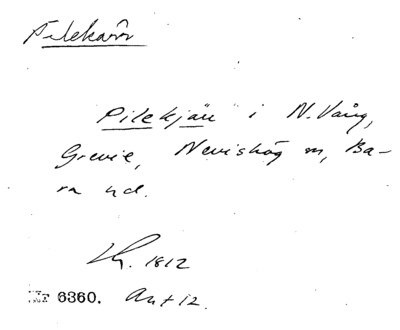 Pilekärr
Pilekjärr i N. Vång,
Grevie, Nevishög sn, Ba-
ra hd.
Kh. 1812
Nr 6360. Ant 12.